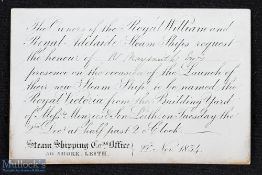 The Owners of the Royal William and
Royal Adelaide Steam Ships request
the honour of
presence on the occasion of the Launch of
their new Steam Ship to be named the
Royal Victoria from the Building Yard
of Messrs Menzies & Son Leith on Tuesday the
Decr at half past 2 o'Clock
Steam Shipping Cos Office
SHORE, LEITH.
Novr 1834.
Mullock's